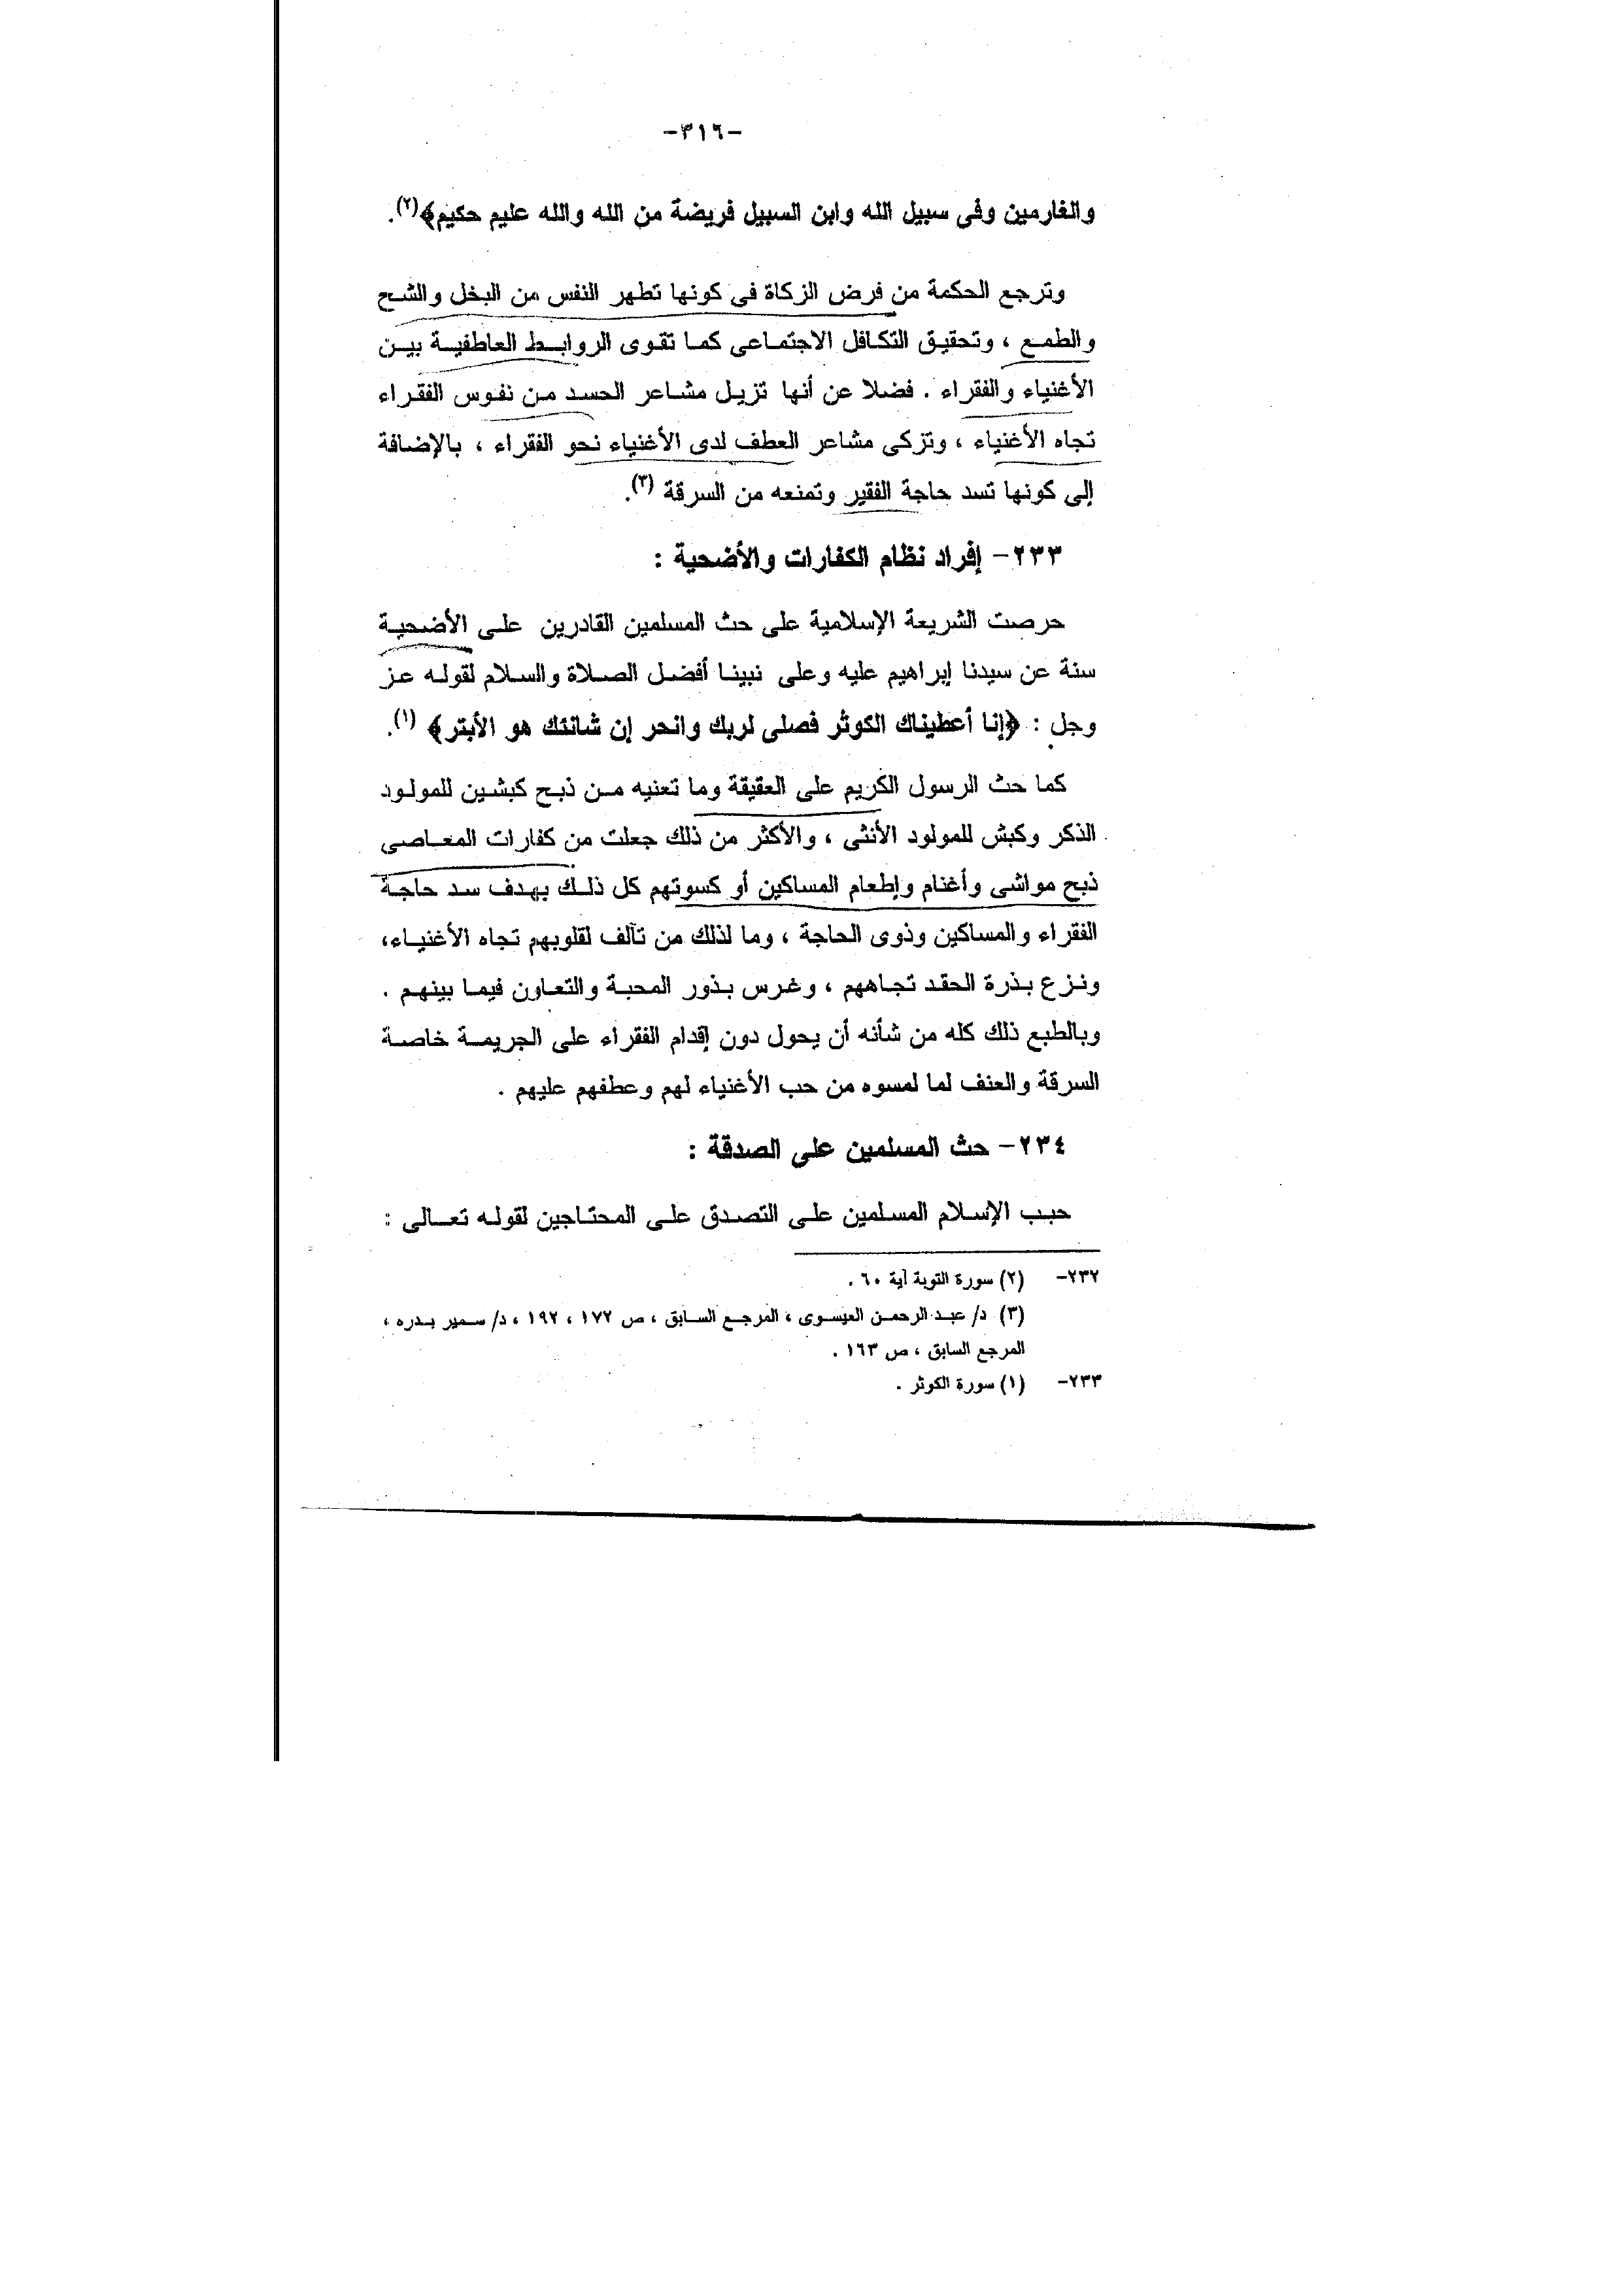 -٣١٦-
والغارمين وفى سبيل الله وابن السبيل فريضة من الله والله عليم حكيم﴾(٢).
وترجع الحكمة من فرض الزكاة فى كونها تطهر النفس من البخل والشح
والطمع ، وتحقيق التكافل الاجتماعى كما تقوى الروابط العاطفية بين
الأغنياء والفقراء . فضلا عن أنها تزيل مشاعر الحسد من نفوس الفقراء
تجاه الأغنياء ، وتزكى مشاعر العطف لدى الأغنياء نحو الفقراء ، بالإضافة
إلى كونها تسد حاجة الفقير وتمنعه من السرقة (٣).
٢٣٣- إفراد نظام الكفارات والأضحية :
حرصت الشريعة الإسلامية على حث المسلمين القادرين على الأضحية
سنة عن سيدنا إبراهيم عليه وعلى نبينا أفضل الصلاة والسلام لقوله عز
وجل : ﴿إنا أعطيناك الكوثر فصلى لربك وانحر إن شانئك هو الأبتر﴾ (١).
كما حث الرسول الكريم على العقيقة وما تعنيه من ذبح كبشين للمولود
الذكر وكبش للمولود الأنثى ، والأكثر من ذلك جعلت من كفارات المعاصى
ذبح مواشى وأغنام وإطعام المساكين أو كسوتهم كل ذلك بهدف سد حاجة
الفقراء والمساكين وذوى الحاجة ، وما لذلك من تآلف لقلوبهم تجاه الأغنياء،
ونزع بذرة الحقد تجاههم ، وغرس بذور المحبة والتعاون فيما بينهم .
وبالطبع ذلك كله من شأنه أن يحول دون إقدام الفقراء على الجريمة خاصة
السرقة والعنف لما لمسوه من حب الأغنياء لهم وعطفهم عليهم .
٢٣٤- حث المسلمين على الصدقة :
حبب الإسلام المسلمين على التصدق على المحتاجين لقوله تعالى :
٢٣٢- (٢) سورة التوبة آية ٦٠ .
(٣) د/ عبد الرحمن العيسوى ، المرجع السابق ، ص ١٧٧ ، ١٩٢ ، د/ سمير بدره ،
المرجع السابق ، ص ١٦٣ .
٢٣٣- (١) سورة الكوثر .